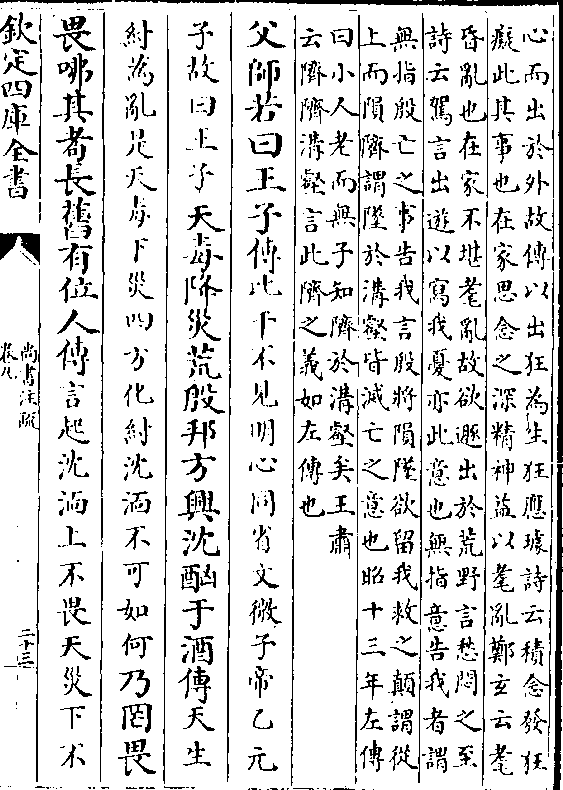 心而出於外故傳以出狂為生狂應璩詩云積念發狂
癡此其事也在家思念之深精神益以耄亂鄭玄云耄
昏亂也在家不堪耄亂故欲遯出於荒野言愁悶之至
詩云駕言出遊以寫我憂亦此意也無指意告我者謂
無指殷亡之事告我言殷將隕墜欲留我救之顛謂從
上而隕隮謂墜於溝壑皆滅亡之意也昭十三年左傳
曰小人老而無子知隮於溝壑矣王肅
云隮隮溝壑言此隮之義如左傳也
父師若曰王子傳比干不見明心同省文微子帝乙元
子故曰王子天毒降災荒殷邦方興沈酗于酒傳天生
紂為亂是天毒下災四方化紂沈湎不可如何乃罔畏
畏咈其耇長舊有位人傳言起沈湎上不畏天災下不
欽定四庫全書
尚書注疏
卷九
二十三